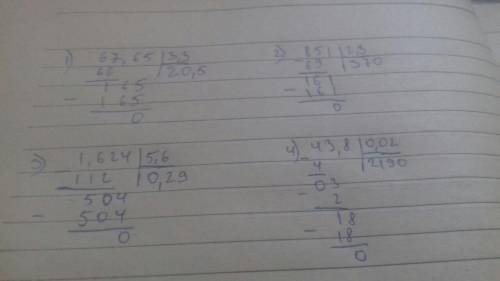 1) 67,65 | 3,3
66 | 20,5
1 65
- 1 65
0
2) - 851 | 2,3
69 | 370
161
- 161
0
3) - 1,624 | 5,6
112 | 0,29
504
- 504
0
4) - 43,8 | 0,02
4 | 2190
03
- 2
18
- 18
0